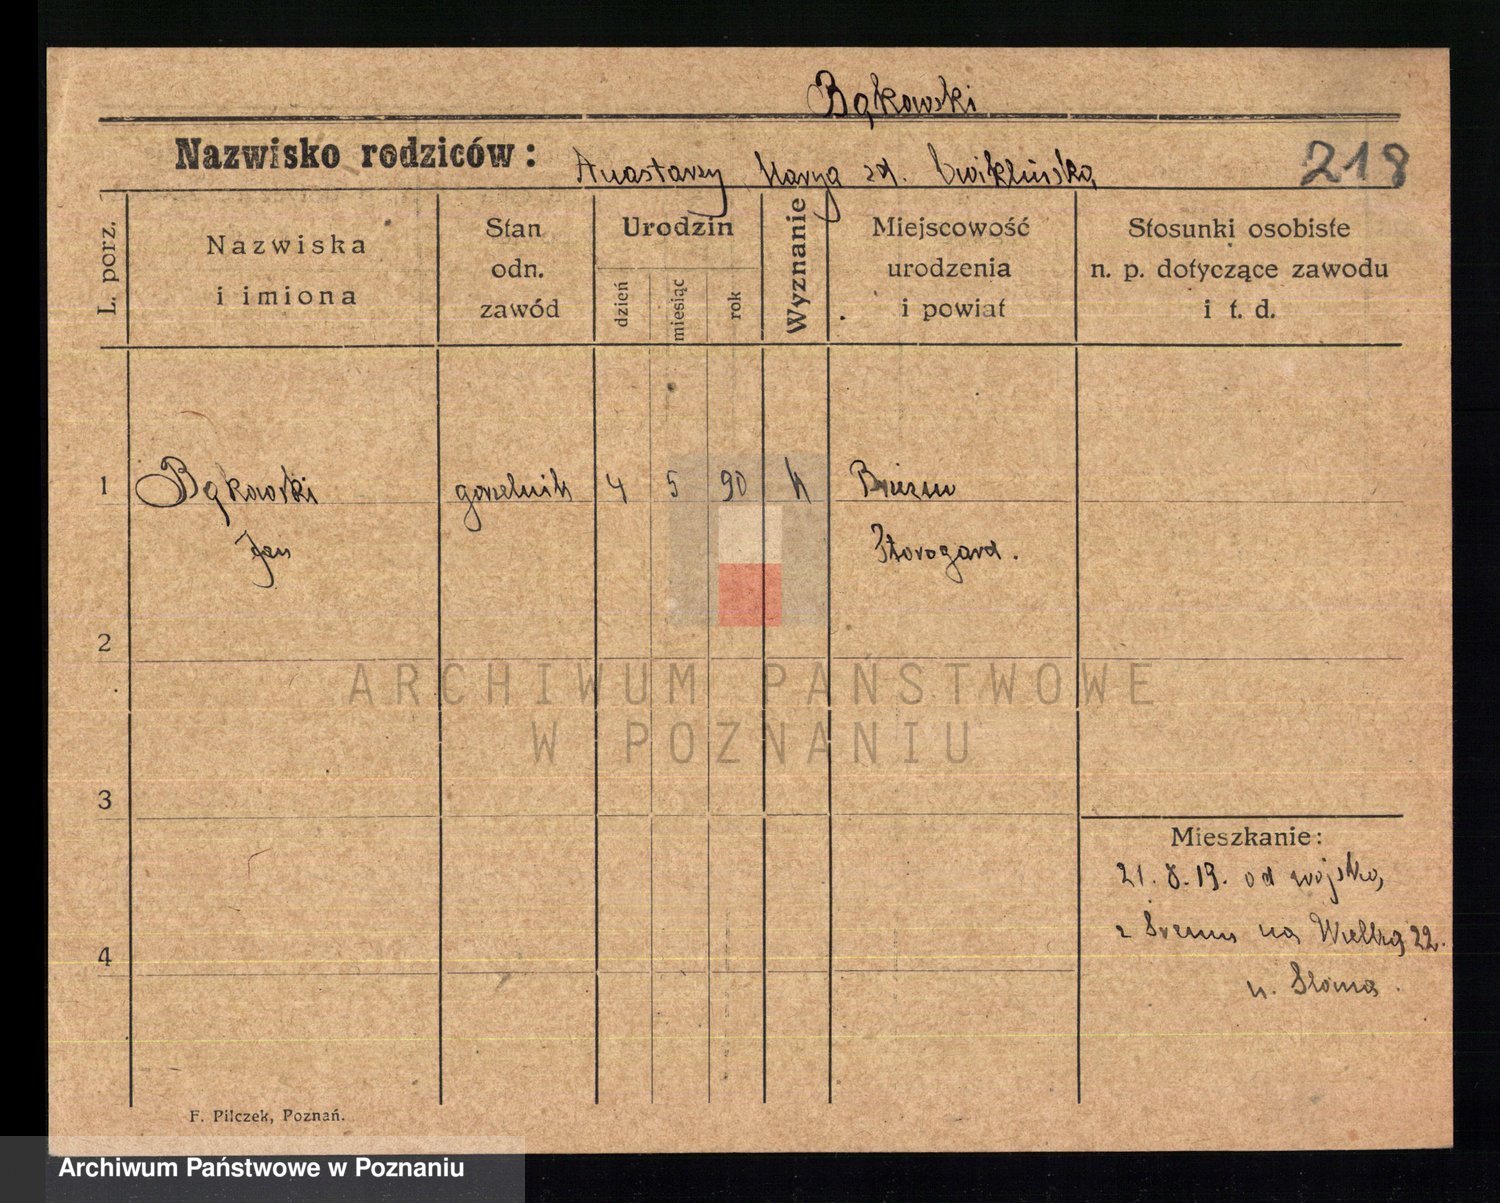 Bąkowski
Nazwisko rodziców: Anastazy Marya zd. Cwiklińska 218
L. porz.
Nazwiska
i imiona
Stan
odn.
zawód
Urodzin
dzień
miesiąc
rok
Wyznanie
Miejscowość
urodzenia
i powiat
Stosunki osobiste
n. p. dotyczące zawodu
i t. d.
1 Bąkowski gorzelnik 4 5 90 k
Jan Starogard.
2
ARCHIWUM PAŃSTWOWE
W POZNANIU
3
Mieszkanie:
21. 8. 19. od wojska,
z Śremu na Wielką 22.
4
u. Słoma.
F. Pilczek, Poznań.
Archiwum Państwowe w Poznaniu